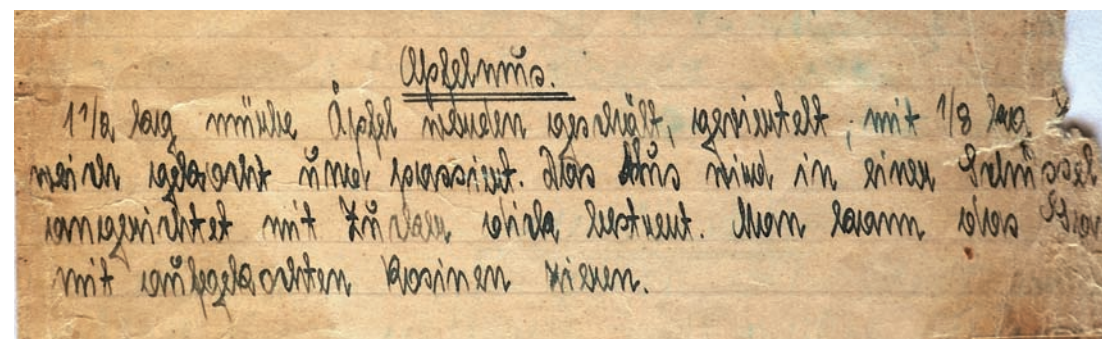 Apfelmus.
1 1/2 kg mürbe Äpfel werden geschält, geviertelt, mit 1/8 kg
weich gekocht und passiert. Das Mus wird in einer Schüssel
angerichtet mit Zucker dick bestreut. Man kann das
mit aufgekochten Rosinen zieren.